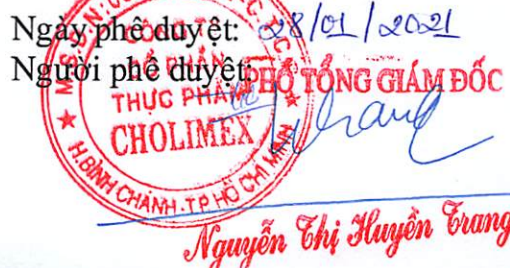 Ngày phê duyệt: 28/01/2021
Người phê duyệt: PHÓ TỔNG GIÁM ĐỐC
CÔNG TY
CỔ PHẦN
THỰC PHẨM
CHOLIMEX
H.BÌNH CHÁNH - T.P HỒ CHÍ MINH
Nguyễn Thị Huyền Trang